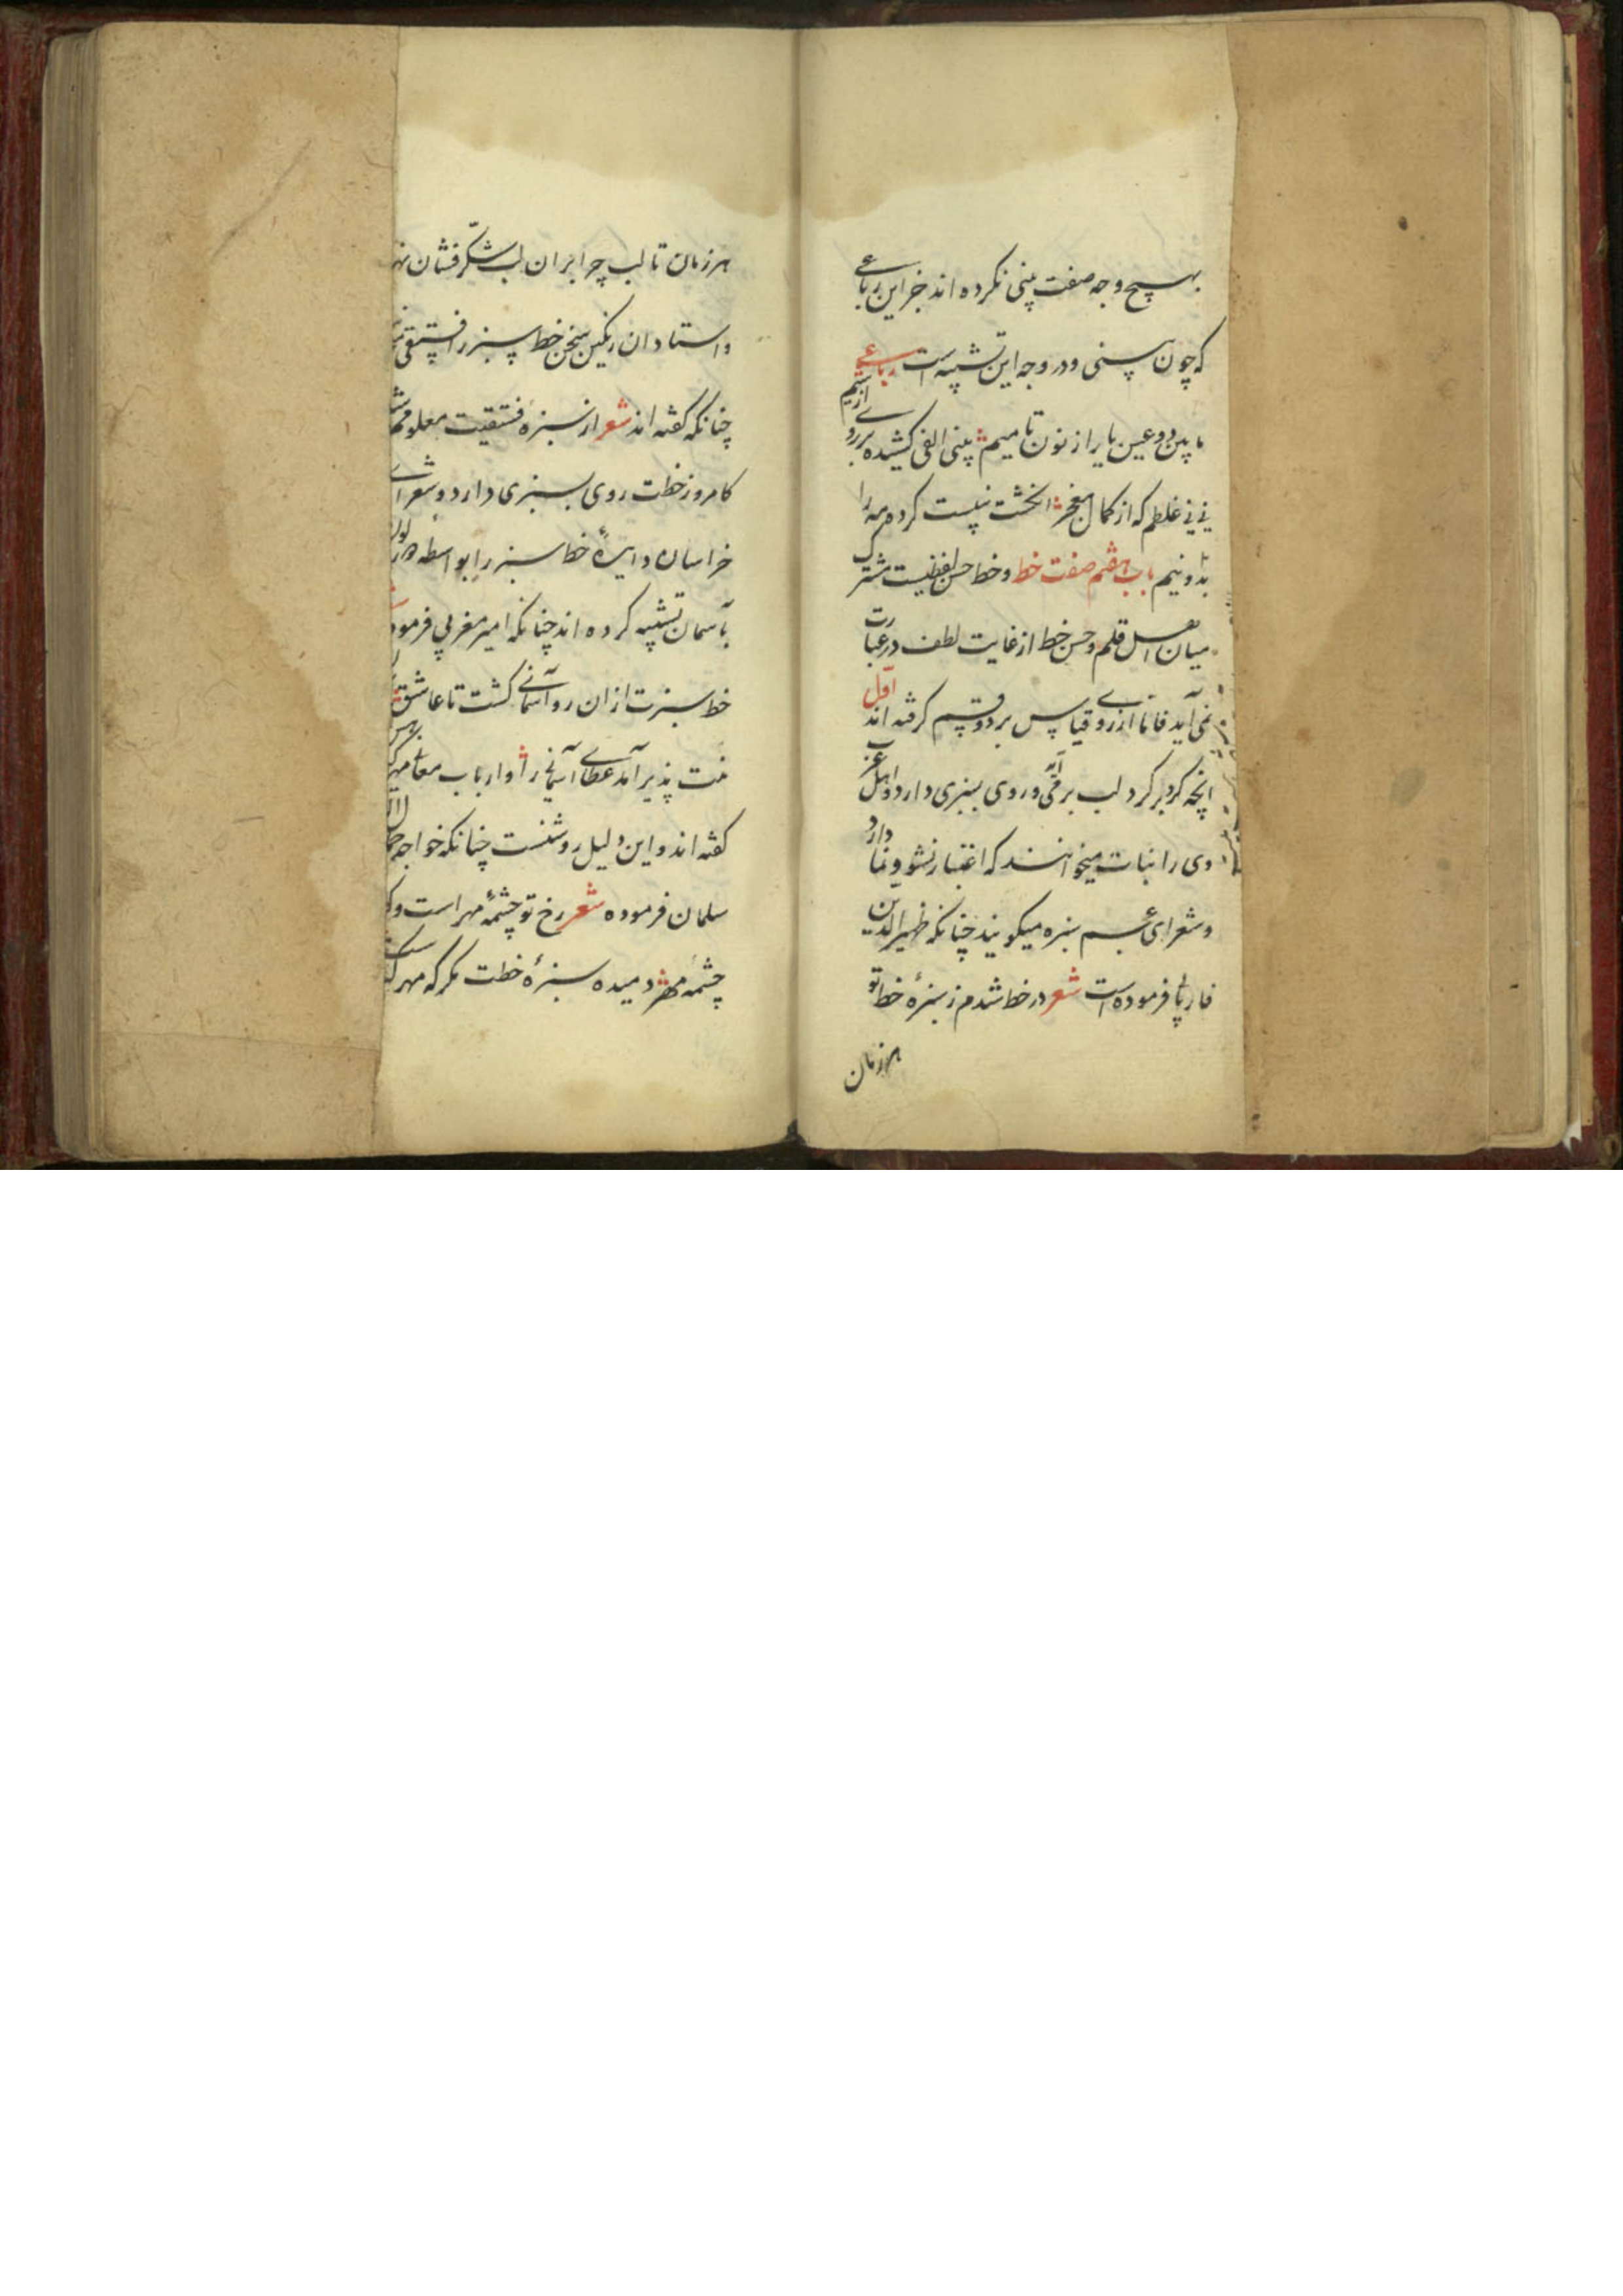 بهیچ وجه صفت بینی نکرده اند جز این رباعی
که چون سنی و در وجه این تشبیه است رباعی
ما بین دو عین یار از نون تا میم بینی الفی کشیده بر روی از سیم
نی نی غلطم که از کمال معجز انگشت نیست کرده مه را
بدو نیم باب هفتم صفت خط و خط حسن لفظیست مشترک
میان اهل قلم و حسن خط از غایت لطف در عبارت
نمی آید فاما از روی قیاس بر دو قسم گرفته اند اول
انچه گرد بر گرد لب بر می آید و روی بسبزی دارد و اهل عرب
وی را نبات میخوانند که اعتبار نشو و نما دارد
و شعرای عجم سبزه میگویند چنانکه ظهیر الدین
فاریابی فرموده است شعر در خط شدم ز سبزهٔ خط تو
هر زمان
هر زمان تا لب چرا بر ان لب شکرفشان
و استادان رنگین سخن خط سبز را فستقی
چنانکه گفته اند شعر از سبزه فستقیت معلوم
کامروز خطت روی بسبزی دارد و شعرای
خراسان دایرهٔ خط سبز را بواسطه
بآسمان تشبیه کرده اند چنانکه امیر معزی فرموده
خط سبزت ازان رو آسمانی گشت تا عاشق
منت پذیر آمد عطای آسمانی را و ارباب معانی
گفته اند و این دلیل روشنست چنانکه خواجه جمال
سلمان فرموده شعر رخ تو چشمهٔ مهر است و
چشمهٔ مهر دمیده سبزهٔ خطت مگر که مهر